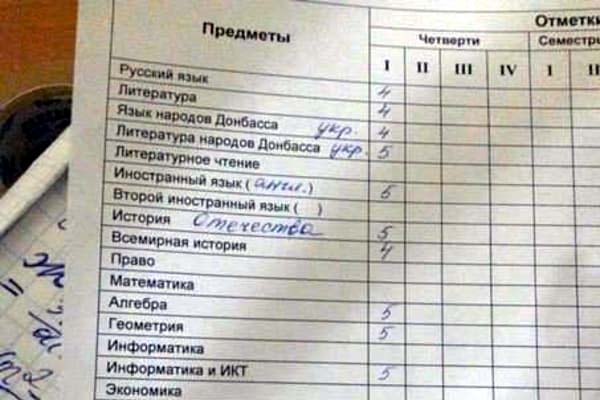 Предметы
Отметки
Четверти
Семестры
I II III IV I II
Русский язык 4
Литература 4
Язык народов Донбасса укр. 4
Литература народов Донбасса укр. 5
Литературное чтение
Иностранный язык (англ.) 5
Второй иностранный язык ( )
История Отечества 5
Всемирная история 4
Право
Математика
Алгебра 5
Геометрия 5
Информатика
Информатика и ИКТ 5
Экономика